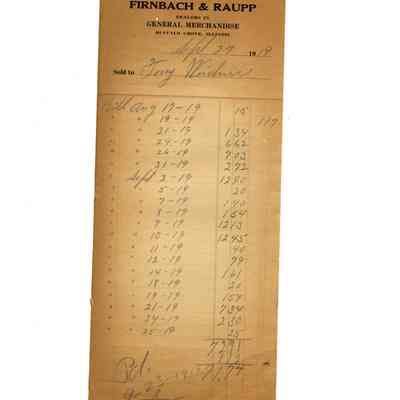 FIRNBACH & RAUPP
DEALERS IN
GENERAL MERCHANDISE
BUFFALO GROVE, ILLINOIS
Sept 27 1919
Sold to Tony
Bill Aug 17-19 15
" " 19-19 1 17
" " 21-19 1 34
" " 24-19 6 62
" " 26-19 7 03
" " 31-19 2 72
" Sept 3-19 12 80
" " 5-19 20
" " 7-19 1 40
" " 8-19 1 64
" " 9-19 12 13
" " 10-19 12 45
" " 11-19 40
" " 12-19 99
" " 14-19 1 61
" " 18-19 20
" " 19-19 1 04
" " 21-19 7 34
" " 24-19 2 30
" " 25-19 25
Pd.
71 74